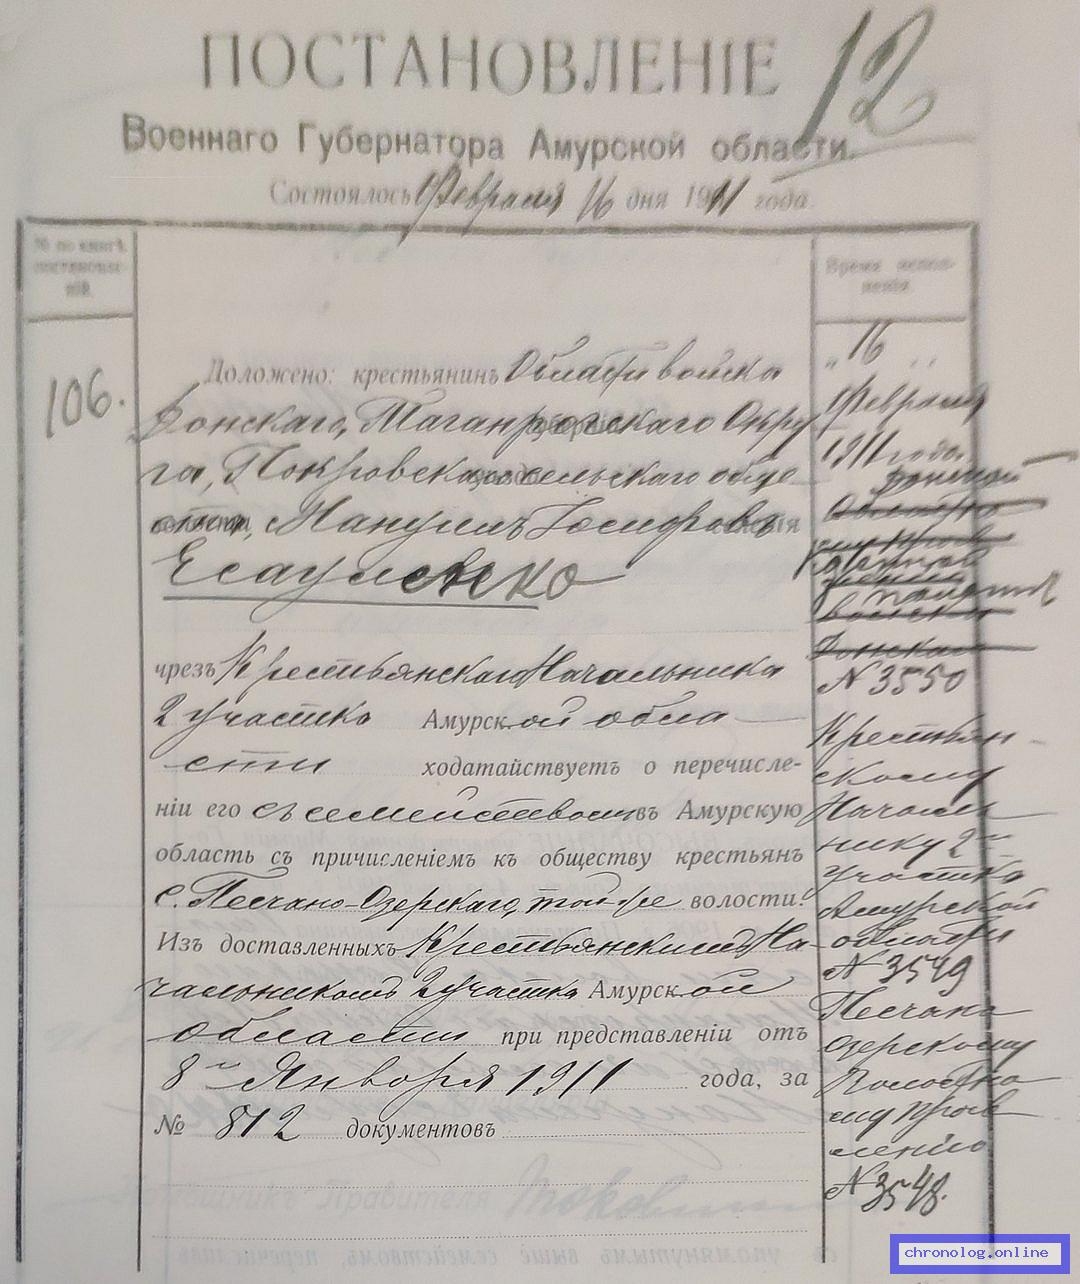 12
ПОСТАНОВЛЕНІЕ
Военнаго Губернатора Амурской области.
Состоялось Февраля 16 дня 1911 года.
№ по книгѣ постановле-
ній.
106.
Доложено: крестьянинъ Области войска
Донскаго, Таганрогскаго Окру
га, Покровскаго сельскаго обще
ства, Мануилъ
Есауленко
чрезъ Крестьянскаго Начальника
2 участка Амурской обла
сти ходатайствуетъ о перечисле-
ніи его съ семействомъ въ Амурскую
область съ причисленіемъ къ обществу крестьянъ
с. Песчано-Озерскаго, той-же волости.
Изъ доставленныхъ Крестьянскимъ На-
чальникомъ 2 участка Амурской
области при представленіи отъ
8 Января 1911 года, за
№ 812 документовъ
Помощникъ Правителя
Время испол-
ненія.
„ 16 „
Февраля
1911 года.
Донской
Казенной
палатѣ
войска
Донскаго
№ 3550
Крестьян-
скому
Началь
нику 2
участка
Амурской
области
№ 3549
Песчано
озерскому
Волостно
му прав
ленію
№ 3548.
chronolog.online